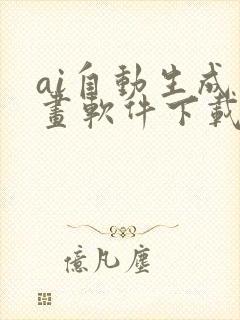 ai自動生成
畫軟件下載
億凡塵